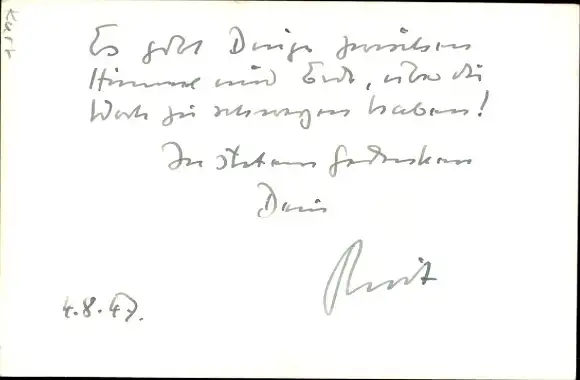 Es gibt Dinge zwischen
Himmel und Erde, über die
Worte zu schweigen haben!
In stetem Gedenken
Dein
4.8.47.
Kurt